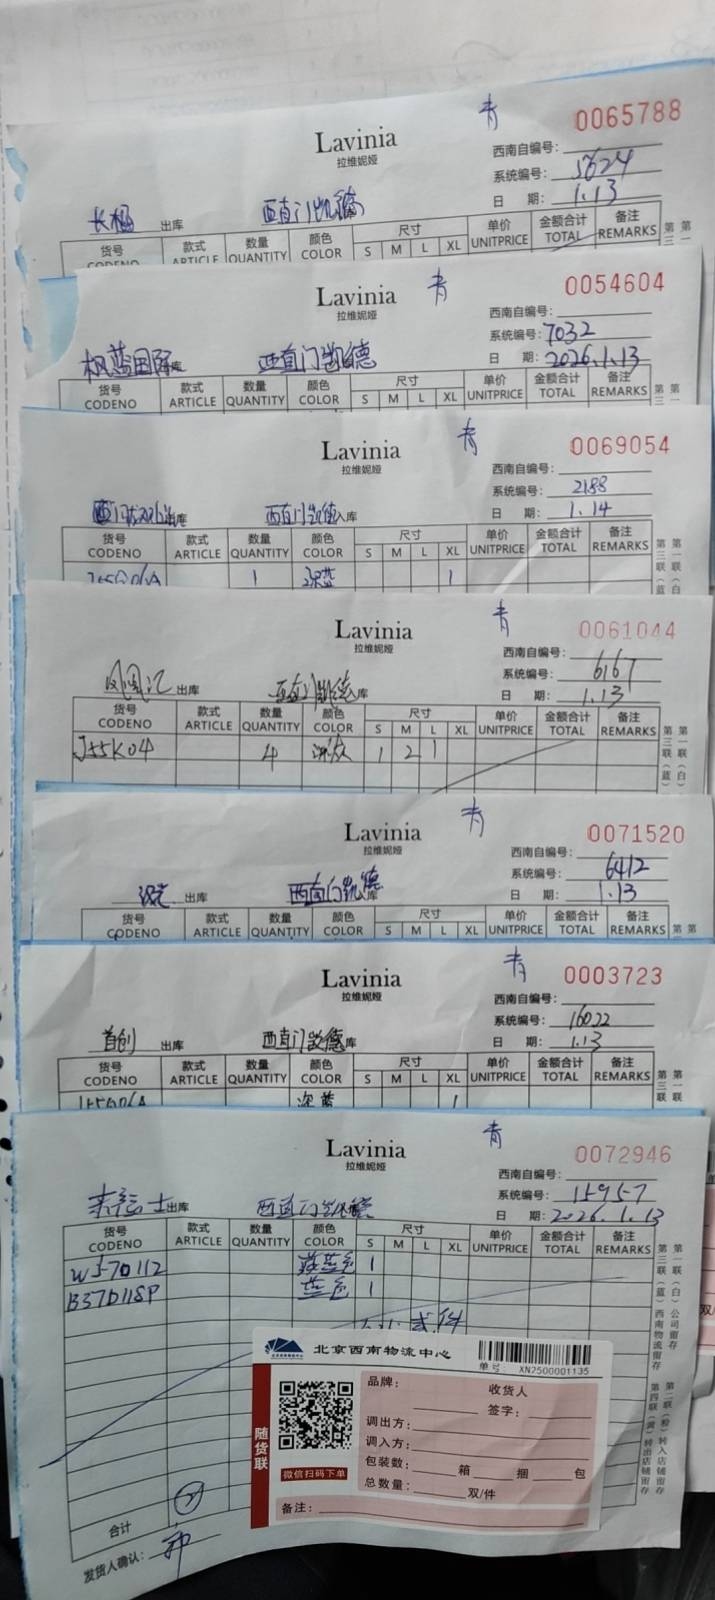 0065788
Lavinia
拉维妮娅
西南自编号:
系统编号: 5624
日 期: 1.13
长楹 出库 西直门凯德
货号 款式 数量 颜色 尺寸 单价 金额合计 备注
CODENO ARTICLE QUANTITY COLOR S M L XL UNITPRICE TOTAL REMARKS
0054604
Lavinia
拉维妮娅
西南自编号:
系统编号: 7032
日 期: 2026.1.13
枫蓝国际 西直门凯德
货号 款式 数量 颜色 尺寸 单价 金额合计 备注
CODENO ARTICLE QUANTITY COLOR S M L XL UNITPRICE TOTAL REMARKS
0069054
Lavinia
拉维妮娅
西南自编号:
系统编号: 2188
日 期: 1.14
出库 西直门凯德 入库
货号 款式 数量 颜色 尺寸 单价 金额合计 备注
CODENO ARTICLE QUANTITY COLOR S M L XL UNITPRICE TOTAL REMARKS
1 深蓝 1
0061044
Lavinia
拉维妮娅
西南自编号:
系统编号: 6167
日 期: 1.13
凤凰汇 出库 西直门凯德 库
货号 款式 数量 颜色 尺寸 单价 金额合计 备注
CODENO ARTICLE QUANTITY COLOR S M L XL UNITPRICE TOTAL REMARKS
J55K04 4 深灰 1 2 1
0071520
Lavinia
拉维妮娅
西南自编号:
系统编号: 6412
日 期: 1.13
出库 西直门凯德 库
货号 款式 数量 颜色 尺寸 单价 金额合计 备注
CODENO ARTICLE QUANTITY COLOR S M L XL UNITPRICE TOTAL REMARKS
0003723
Lavinia
拉维妮娅
西南自编号:
系统编号: 16022
日 期: 1.13
首创 出库 西直门凯德 库
货号 款式 数量 颜色 尺寸 单价 金额合计 备注
CODENO ARTICLE QUANTITY COLOR S M L XL UNITPRICE TOTAL REMARKS
深蓝 1
0072946
Lavinia
拉维妮娅
西南自编号:
系统编号: 15957
日 期: 2026.1.13
出库 西直门凯德
货号 款式 数量 颜色 尺寸 单价 金额合计 备注
CODENO ARTICLE QUANTITY COLOR S M L XL UNITPRICE TOTAL REMARKS
WJ70112 藏蓝色 1
B57D118P 蓝色 1
贰件
第一联(白)公司留存
第三联(蓝)西南物流留存
第二联(粉)转入店铺留存
第四联(黄)转出店铺留存
合计
发货人确认:
北京西南物流中心
单号: XN2500001135
随货联
微信扫码下单
品牌: 收货人
签字:
调出方:
调入方:
包装数: 箱 捆 包
总数量: 双/件
备注: